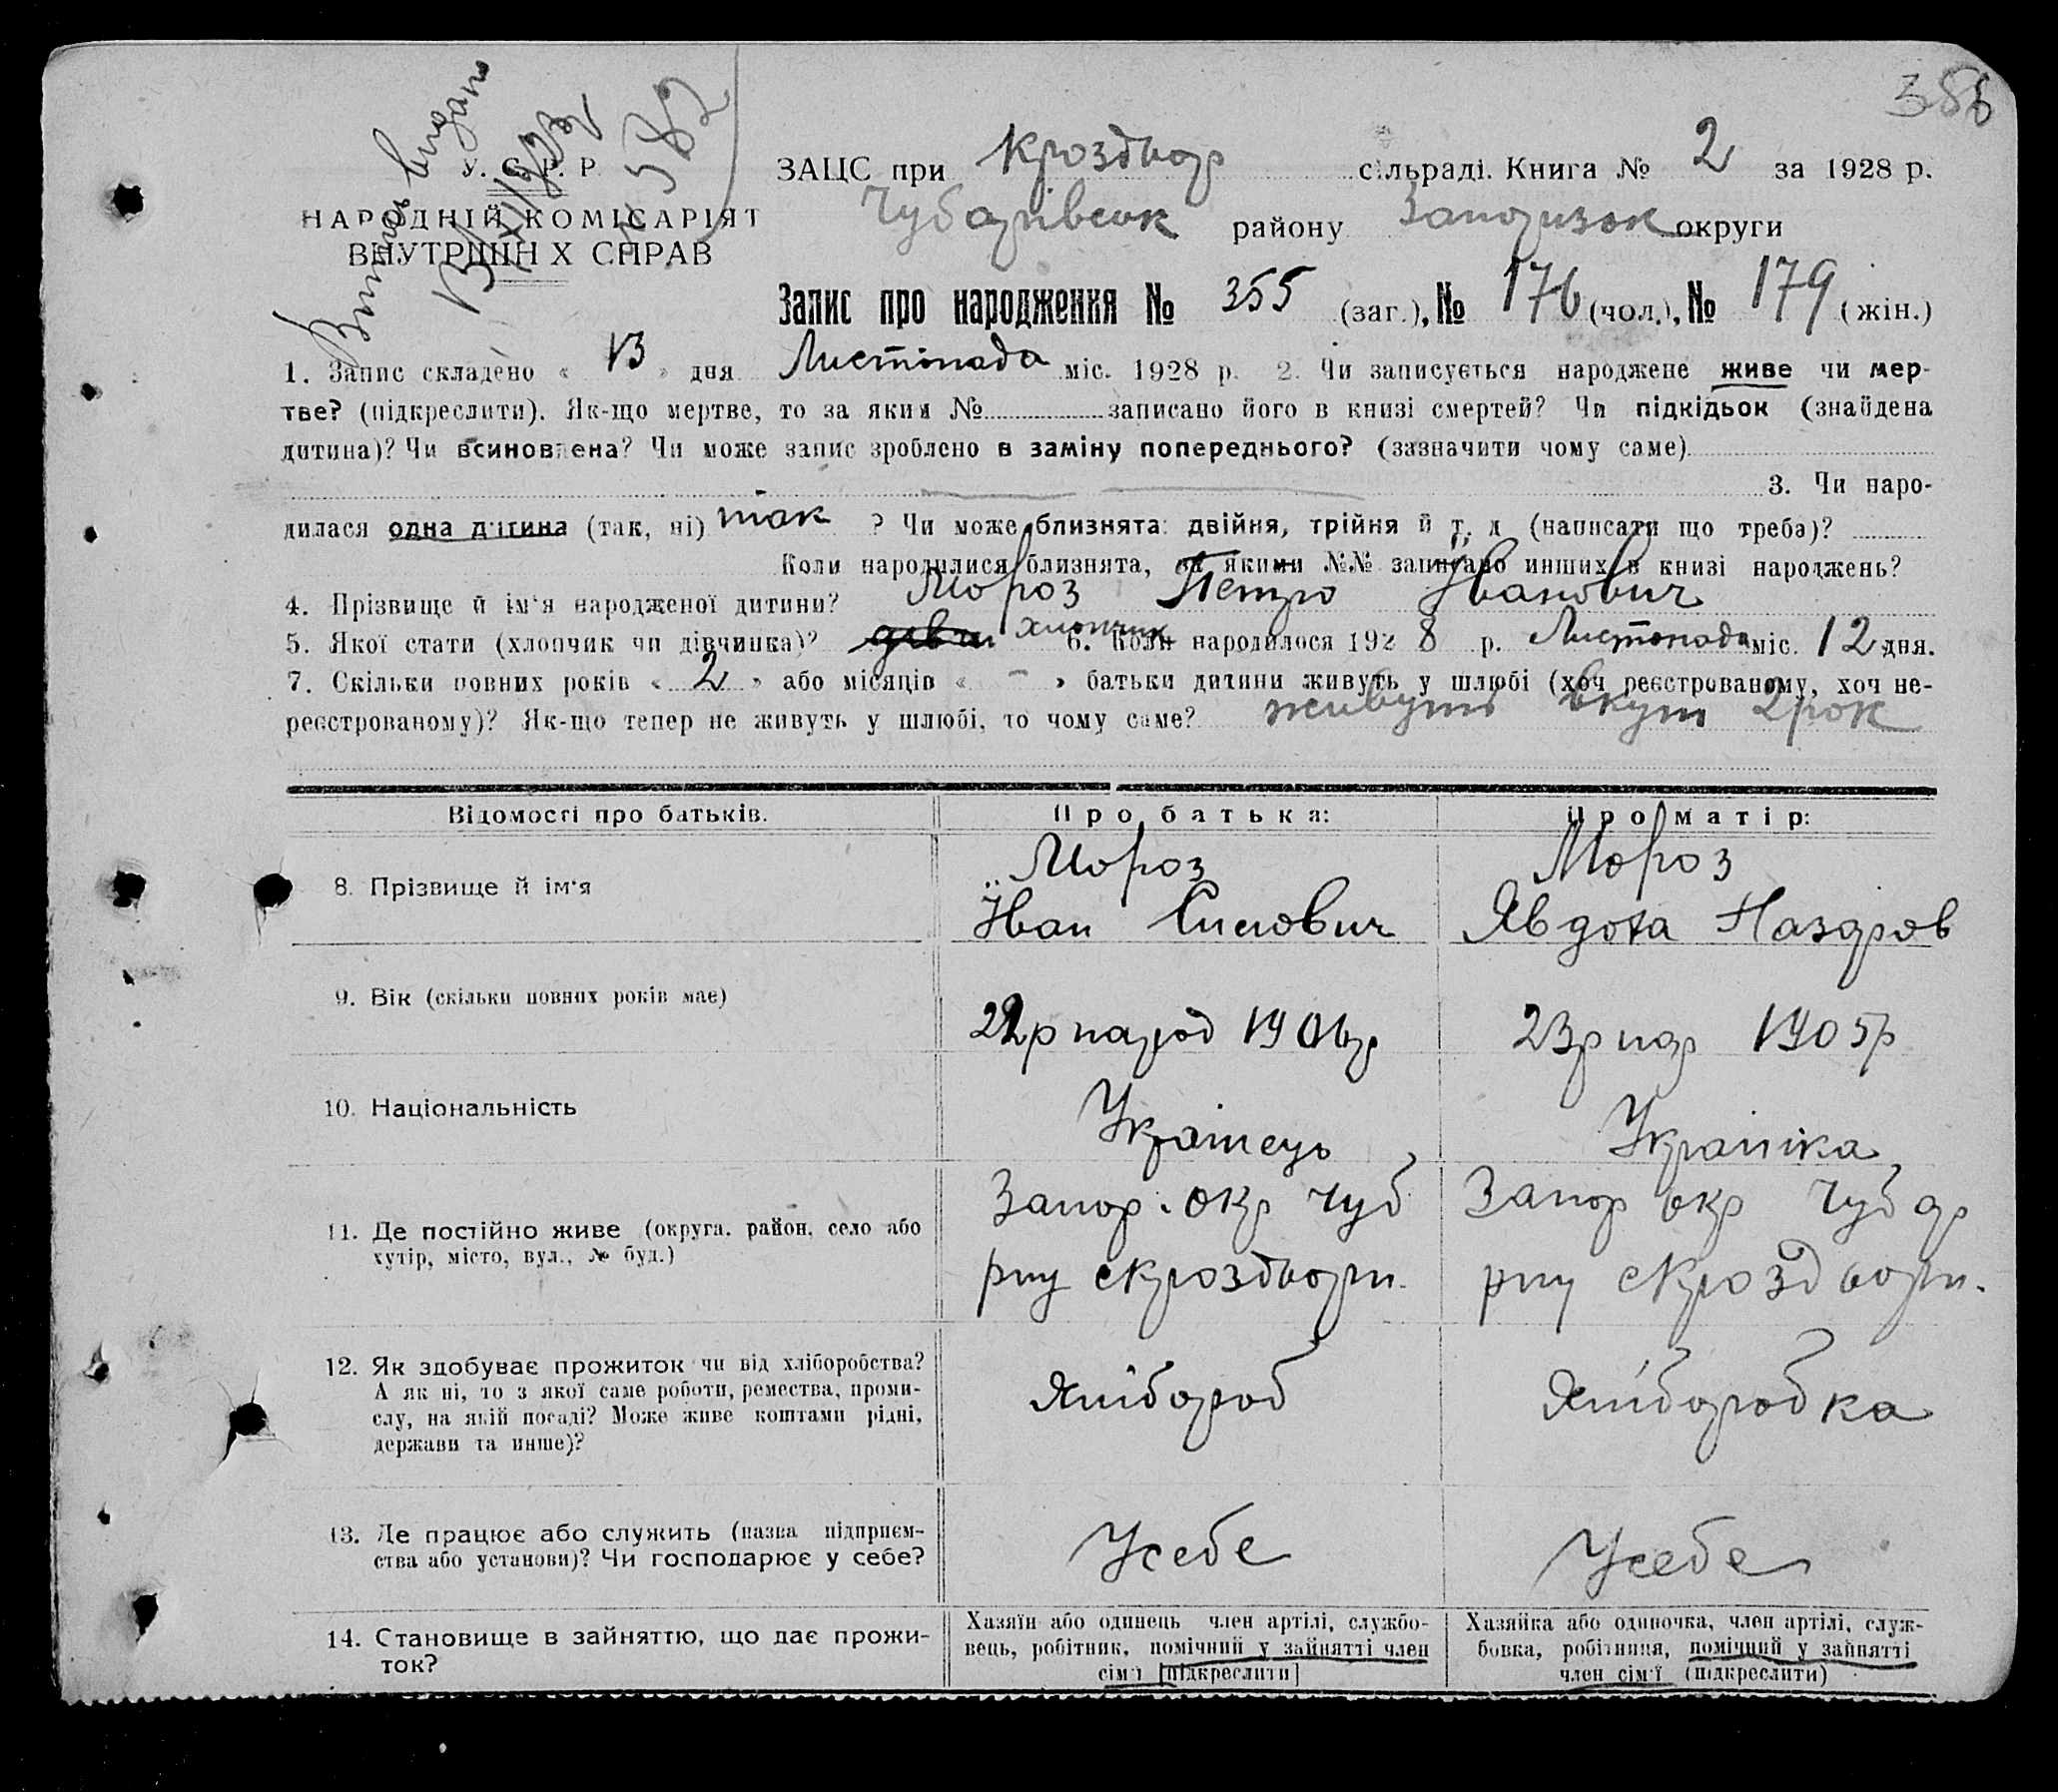 356
Витяг видано
13/XII/32
№ 582
У. С. Р. Р.
НАРОДНІЙ КОМІСАРІЯТ
ВНУТРІШНІХ СПРАВ
ЗАЦС при Кроздвор сільраді. Книга № 2 за 1928 р.
Чубарівськ району Запоризок округи
Запис про народження № 355 (заг.), № 176 (чол.), № 179 (жін.)
1. Запис складено « 13 » дня Листопада міс. 1928 р. 2. Чи записується народжене живе чи мер-
тве? (підкреслити). Як-що мертве, то за яким № записано його в книзі смертей? Чи підкідьок (знайдена
дитина)? Чи всиновлена? Чи може запис зроблено в заміну попереднього? (зазначити чому саме)
3. Чи наро-
дилася одна дитина (так, ні) так ? Чи може близнята: двійня, трійня й т. д (написати що треба)?
Коли народилися близнята, за якими №№ записано инших в книзі народжень?
4. Прізвище й ім'я народженої дитини? Мороз Петро Іванович
5. Якої стати (хлопчик чи дівчинка)? дівчи хлопчик 6. Коли народилося 192 8 р. Листопада міс. 12 дня.
7. Скільки повних років « 2 » або місяців « - » батьки дитини живуть у шлюбі (хоч реєстрованому, хоч не-
реєстрованому)? Як-що тепер не живуть у шлюбі, то чому саме? живуть вкуп 2 рок
Відомості про батьків. Про батька: Про матір:
8. Прізвище й ім'я
Мороз
Іван Сисович
Мороз
Явдоха Назаров
9. Вік (скільки повних років має)
22р народ 1906р
23р нар 1905р
10. Національність
Українець
Українка
11. Де постійно живе (округа, район, село або
хутір, місто, вул., № буд.)
Запор. окр Чуб
рну с Кроздвори.
Запор окр Чубар
рну с Кроздвори.
12. Як здобуває прожиток чи від хліборобства?
А як ні, то з якої саме роботи, ремества, проми-
слу, на якій посаді? Може живе коштами рідні,
держави та инше)?
Хлібороб
Хліборобка
13. Де працює або служить (назва підприєм-
ства або установи)? Чи господарює у себе?
Усебе
Усебе
14. Становище в зайняттю, що дає прожи-
ток?
Хазяїн або одинець член артілі, службо-
вець, робітник, помічний у зайнятті член
сім'ї [підкреслити]
Хазяйка або одиночка, член артілі, служ-
бовка, робітниця, помічний у зайнятті
член сім'ї (підкреслити)